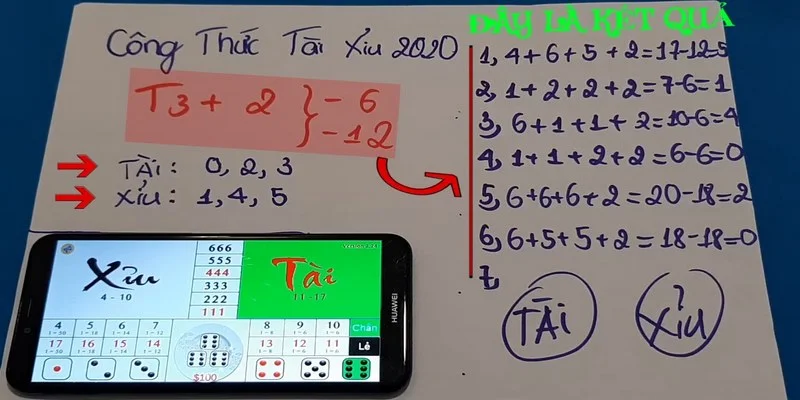 ĐÂY LÀ KẾT QUẢ
Công Thức Tài Xỉu 2020
T3 + 2 } - 6
- 12
TÀI: 0, 2, 3
XỈU: 1, 4, 5
1, 4+6+5+2=17-12=5
2, 1+2+2+2=7-6=1
3, 6+1+1+2=10-6=4
4, 1+1+2+2=6-6=0
5, 6+6+6+2=20-18=2
6, 6+5+5+2=18-18=0
7,
TÀI
XỈU
Xỉu
4 - 10
666
555
444
333
222
111
Tài
11 - 17
4 5 6 7
17 16 15 14
8 9 10
13 12 11
Chẵn
Lẻ
$100
HUAWEI